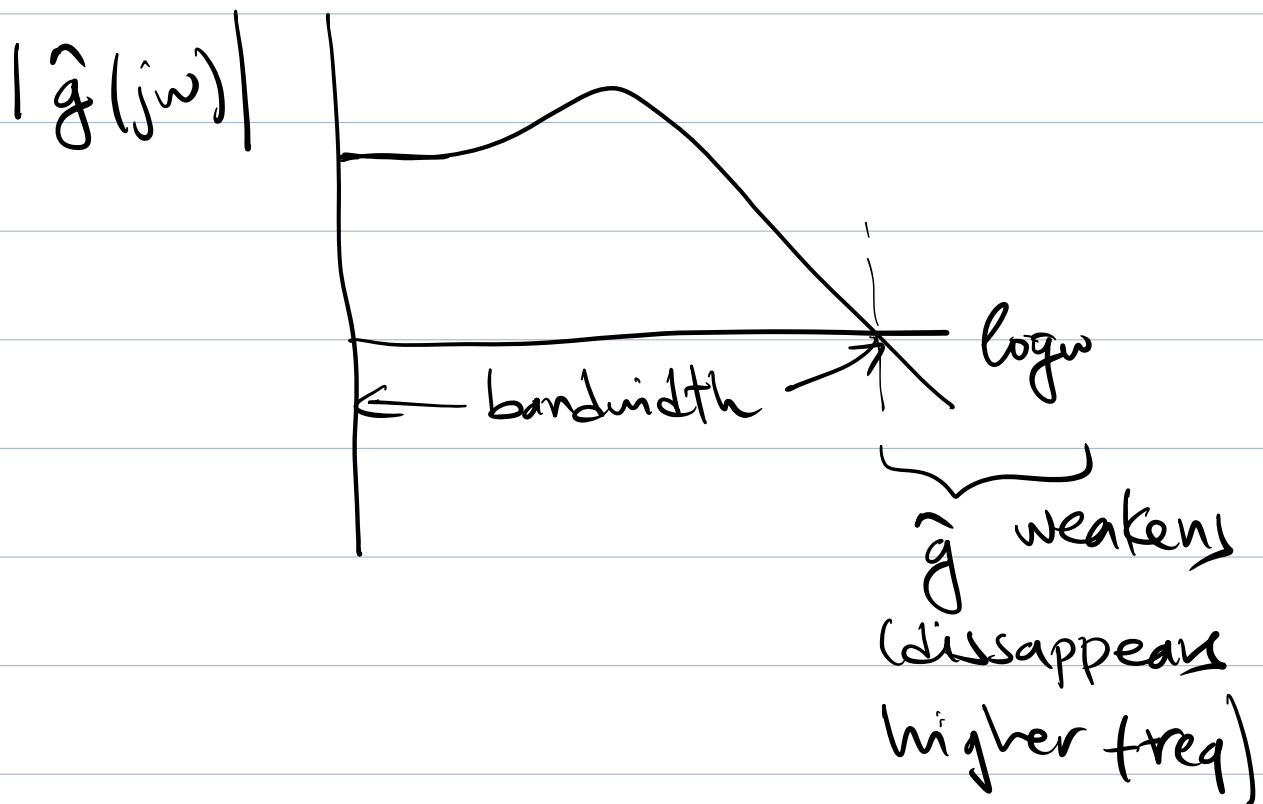 |ĝ(jω)|
logω
bandwidth
ĝ weakens
(dissappears
higher freq)